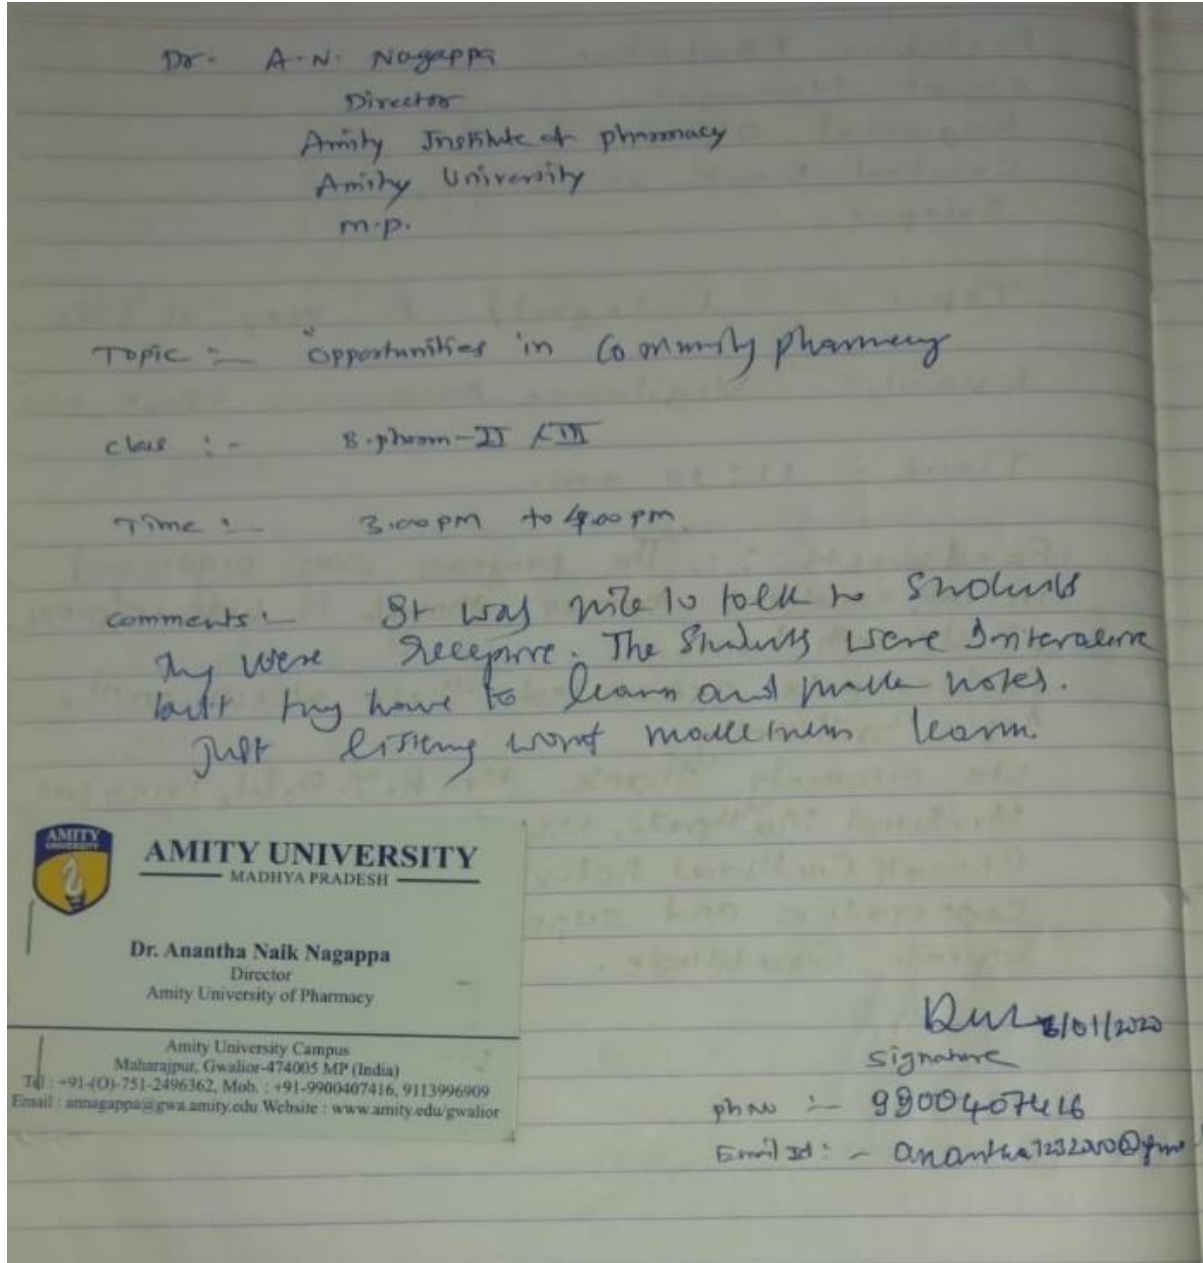 Dr. A.N. Nagappa
Director
Amity Institute of pharmacy
Amity University
m.p.
Topic :- "Opportunities in Community pharmacy
Class :- B.pharm-II & III
Time :- 3.00pm to 4.00pm.
comments :- It was nice to talk to Students
They were Receptive. The Students were Interactive
but they have to learn and make notes.
Just listening wont make them learn.
AMITY
UNIVERSITY
AMITY UNIVERSITY
MADHYA PRADESH
Dr. Anantha Naik Nagappa
Director
Amity University of Pharmacy
Amity University Campus
Maharajpur, Gwalior-474005 MP (India)
Tel : +91-(O)-751-2496362, Mob. : +91-9900407416, 9113996909
Email : annagappa@gwa.amity.edu Website : www.amity.edu/gwalior
/01/2020
Signature
ph no :- 9900407416
Email Id :-